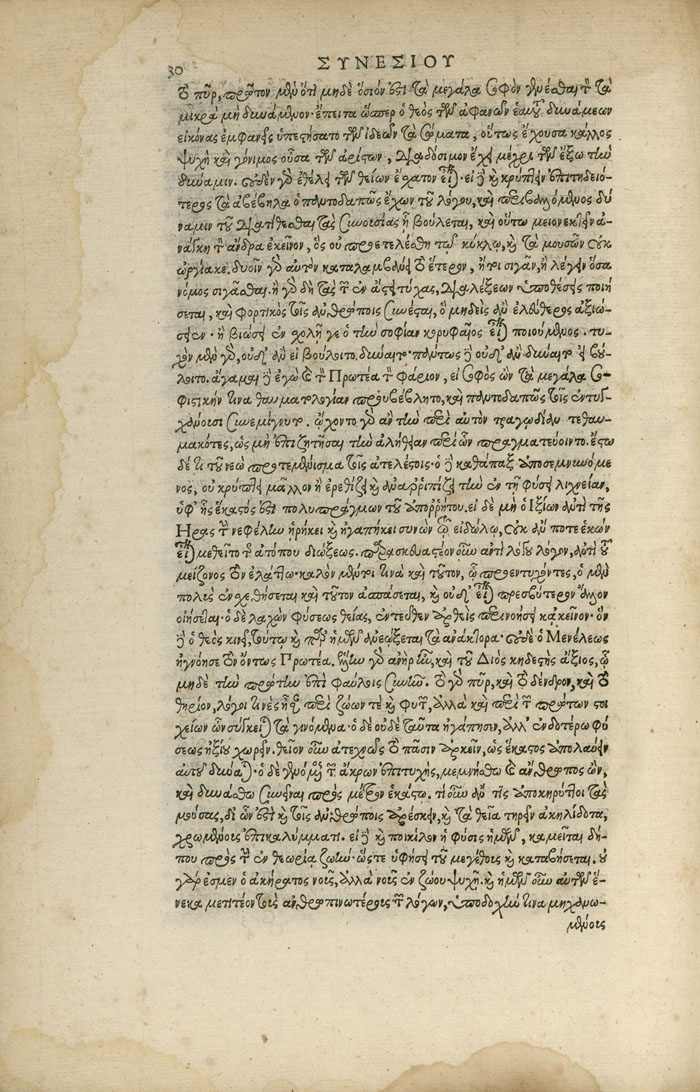 30
ΣΥΝΕΣΙΟΥ
τὸ πῦρ, πρῶτον μὲν ὅτι μηδὲ ὅσιόν ἐστι τὰ μεγάλα σοφὸν γενέσθαι τὸν τὰ
μικρὰ μὴ δυνάμενον. ἔπειτα ὥσπερ ὁ θεὸς τῶν ἀφανῶν ἑαυτοῦ δυνάμεων
εἰκόνας ἐμφανεῖς ὑπεστήσατο τῶν ἰδεῶν τὰ σώματα, οὕτως ἔχουσα κάλλος
ψυχὴ καὶ γόνιμος οὖσα τῶν ἀρίστων, διαδόσιμον ἔχει μέχρι τῶν ἔξω τὴν
δύναμιν. οὐδὲν γὰρ ἐθέλει τῶν θείων ἔσχατον εἶναι. εἰ δὲ καὶ κρύπτειν ἐπιτηδειό-
τερος τὰ βέβηλα ὁ παντοδαπῶς ἔχων τοῦ λόγου, καὶ
ναμιν τοῦ διατίθεσθαι τὰς συνουσίας ᾗ βούλεται, καὶ οὕτω μειονεκτεῖν ἀ-
νάγκη τὸν ἄνδρα ἐκεῖνον, ὃς οὐ προετελέσθη τῷ κύκλῳ, καὶ τὰ μουσῶν οὐκ
ὠργίακε. δυοῖν γὰρ αὐτὸν καταλαμβάνει τὸ ἕτερον, ἤτοι σιγᾶν, ἢ λέγειν ὅσα
νόμος σιγᾶσθαι. ἢ γὰρ δὴ τὰς τῶν ἐν ἄστει τύχας, διαλέξεων ὑποθέσεις ποιή
σεται, καὶ φορτικὸς τοῖς ἀνθρώποις συνέσται, ὃ μηδεὶς ἂν ἐλεύθερος ἀξιώ-
σειεν. ἢ βιώσει ἐν σχολῇ γε ὁ τὴν σοφίαν κορυφαῖος εἶναι ποιούμενος. τυ-
χὸν μὲν γὰρ, οὐδ' ἂν εἰ βούλοιτο, δύναιτο. πάντως δὲ οὐδ' ἂν δύναιτο εἰ βού-
λοιτο. ἄγαμαι δὲ ἐγὼ καὶ τὸν Πρωτέα τὸν Φάριον, εἰ σοφὸς ὢν τὰ μεγάλα σο-
φιστικήν τινα θαυματολογίαν προυβέβλητο, καὶ παντοδαπῶς τοῖς ἐντυγ-
χάνουσι συνεμίγνυτο. ᾤχοντο γὰρ ἂν τὴν περὶ αὐτὸν τραγῳδίαν τεθαυ-
μακότες, ὡς μὴ ἐπιζητῆσαι τὴν ἀλήθειαν περὶ ὧν πραγματεύοιντο. ἔστω
δέ τι τοῦ νεὼ προτεμένισμα τοῖς ἀτελέστοις. ὁ δὲ καθάπαξ ἀποσεμνυνόμε
νος, οὐ κρύπτει μᾶλλον ἢ ἐρεθίζει καὶ ἀναρριπίζει τὴν ἐν τῇ φύσει λιχνείαν,
ὑφ' ἧς ἕκαστός ἐστι πολυπράγμων τοῦ ἀπορρήτου. εἰ δὲ μὴ ὁ Ἰξίων ἀντὶ τῆς
Ἥρας τὴν νεφέλην ᾑρήκει καὶ ἠγαπήκει συνὼν τῷ εἰδώλῳ, οὐκ ἄν ποτε ἑκὼν
εἶναι μεθεῖτο τῆς ἀτόπου διώξεως. παρασκευαστέον οὖν ἀντὶ λόγου λόγον, ἀντὶ τοῦ
μείζονος τὸν ἐλάττω. καλὸν μέντοι τινὰ καὶ τοῦτον, ᾧ προεντυχόντες, ὁ μὲν
πολὺς ἐνσχεθήσεται καὶ τοῦτον ἀσπάσεται, καὶ οὐδ' εἶναι πρεσβύτερον ἄλλον
οἰήσεται. ὁ δὲ λαχὼν φύσεως θείας, ἐντεῦθεν ἀρθεὶς περινοήσει κἀκεῖνον. ὃν
δὲ ὁ θεὸς κινεῖ, τούτῳ καὶ παρ' ἡμῶν ἀνεῴξεται τὰ ἀνάκτορα. οὐδὲ ὁ Μενέλεως
ἠγνόησε τὸν ὄντως Πρωτέα. ἕλλην γὰρ ἀνὴρ ἦν, καὶ τοῦ Διὸς κηδεστὴς ἄξιος, ᾧ
μηδὲ τὴν πρώτην ἐπὶ φαύλοις συνεῖναι. τὸ γὰρ πῦρ, καὶ τὸ δένδρον, καὶ τὸ
θηρίον, λόγοι τινὲς ἦσαν περὶ ζώων τε καὶ φυτῶν, ἀλλὰ καὶ περὶ τῶν πρώτων στοι
χείων ὧν σύγκειται τὰ γινόμενα. ὁ δὲ οὐδὲ ταῦτα ἠγάπησεν, ἀλλ' ἐνδοτέρω φύ
σεως ἠξίου χωρεῖν. θεῖον οὖν ἀτεχνῶς τὸ πᾶσιν ἀρκεῖν, ὡς ἕκαστος ἀπολαύειν
αὐτοῦ δύναται. ὁ δὲ γενόμενος τῶν ἄκρων ἐπιτυχὴς, μεμνήσθω καὶ ἄνθρωπος ὢν,
καὶ δυνάσθω συνεῖναι πρὸς μέτρον ἑκάστῳ. τί οὖν ἄν τις ἀποκηρύττοι τὰς
μούσας, δι' ὧν ἐστι καὶ τοῖς ἀνθρώποις ἀρέσκειν, καὶ τὰ θεῖα τηρεῖν ἀκηλίδωτα,
χρωμένοις ἐπικαλύμματι. εἰ δὲ καὶ ποικίλον ἡ φύσις ἡμῶν, καμεῖται δή-
που πρὸς τὴν ἐν θεωρίᾳ ζωήν. ὥστε ὑφήσει τοῦ μεγέθους καὶ καταβήσεται. οὐ
γάρ ἐσμεν ὁ ἀκήρατος νοῦς, ἀλλὰ νοῦς ἐν ζώου ψυχῇ. καὶ ἡμῶν οὖν αὐτῶν ἕ-
νεκα μετιτέον τοὺς ἀνθρωπινωτέρους τῶν λόγων, ὑποδοχήν τινα μηχανω-
μένοις